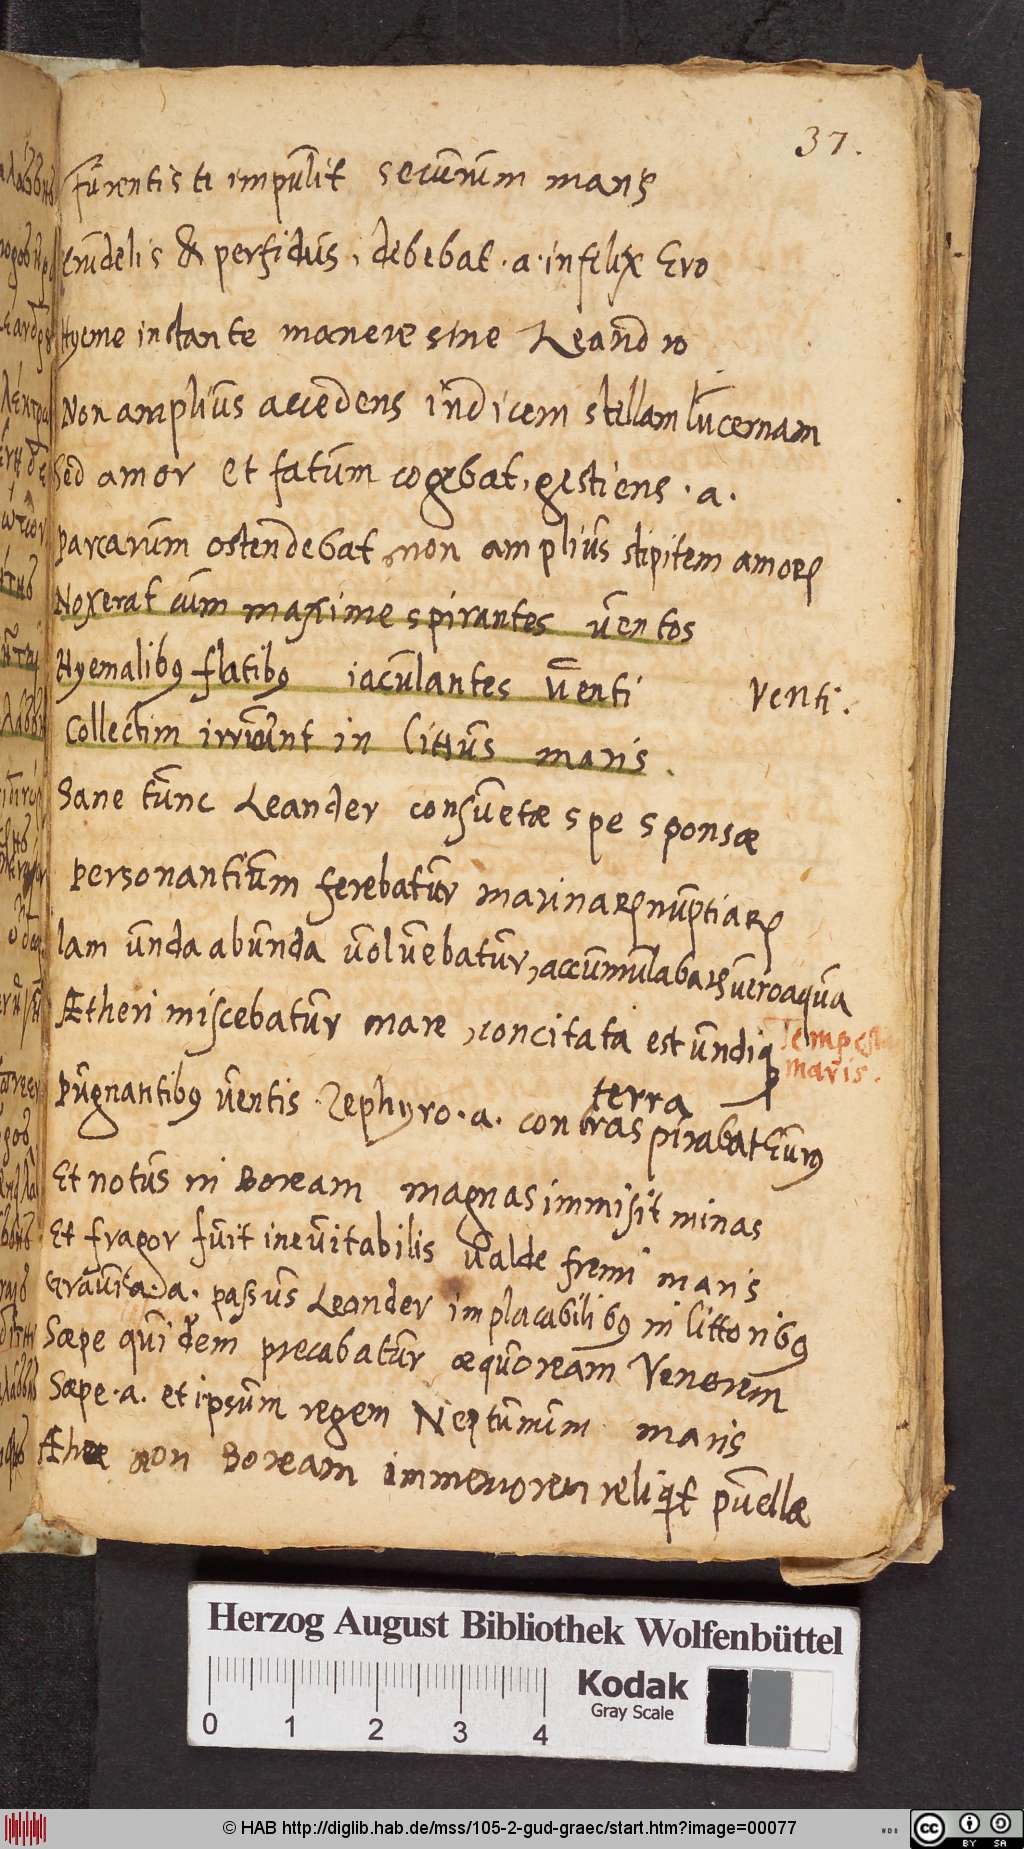 37.
furentis ti impulit securum maris
Crudelis & perfidus, debebat .a. infelix Ero
Hyeme instante manere sine Leandro
Non amplius accedens indicem stellam lucernam
Sed amor et fatum cogebat, gestiens .a.
Parcarum ostendebat non amplius stipitem amorꝝ
Nox erat cum maxime spirantes uentos
Hyemalibꝰ flatibꝰ iaculantes uenti
Venti.
Collectim irruunt in littus maris.
Sane tunc Leander consuetæ spe sponsæ
Personantium ferebatur marinarꝝ nuptiarꝝ
Iam unda ab unda uoluebatur, accumulabatur uero aqua
Ætheri miscebatur mare, concitata est undiqꝫ
Tempesta
maris.
terra
Pugnantibꝰ uentis Zephyro .a. contra spirabat Eurꝰ
Et notus in Boream magnas immisit minas
Et fragor fuit ineuitabilis ualde fremi maris
Grauia .a. passus Leander implacabilibꝰ in littoribꝰ
Sæpe quidem precabatur æquoream Venerem
Sæpe .a. et ipsum regem Neptunum maris
non Boream immemorem reliqit puellæ
Herzog August Bibliothek Wolfenbüttel
0 1 2 3 4
Kodak
Gray Scale
© HAB http://diglib.hab.de/mss/105-2-gud-graec/start.htm?image=00077
WDB
cc BY SA